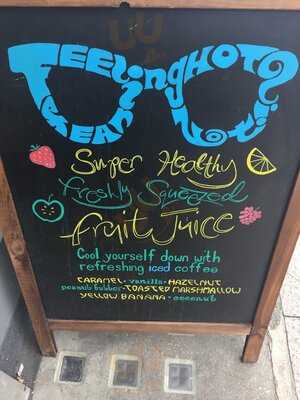 FEELingHOT?
Super Healthy
Freshly Squeezed
Fruit Juice
Cool yourself down with
refreshing iced coffee
CARAMEL · vanilla · HAZELNUT
peanut butter · TOASTED MARSHMALLOW
YELLOW BANANA · coconut